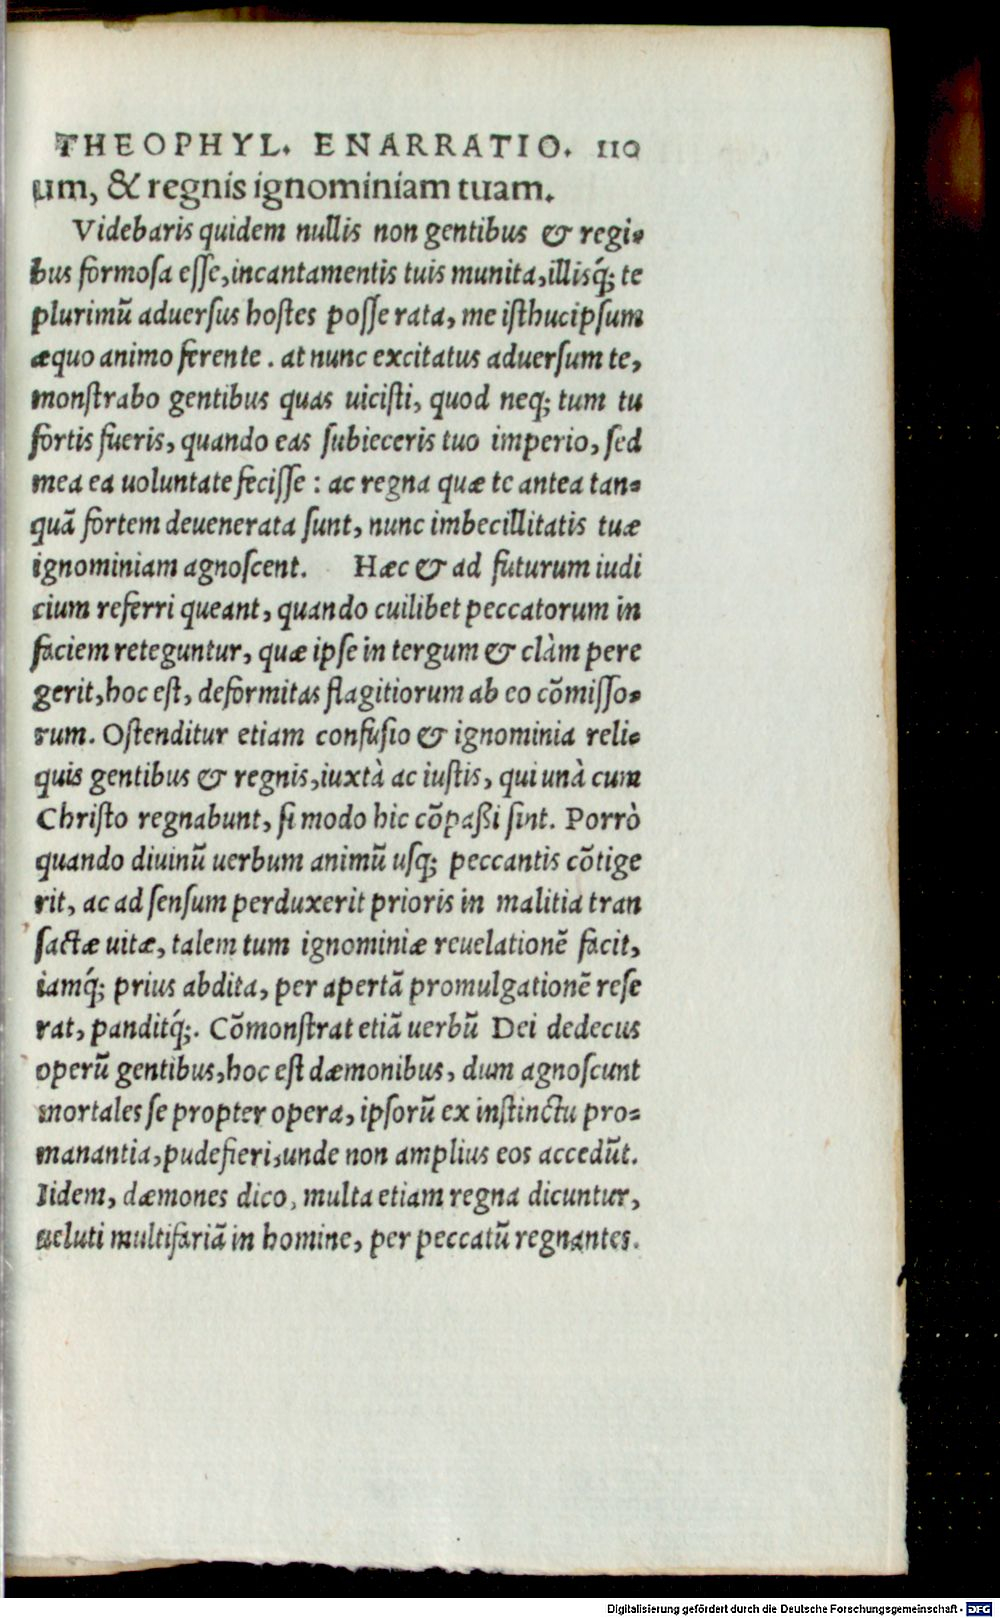 THEOPHYL. ENARRATIO. 110
um, & regnis ignominiam tuam.
Videbaris quidem nullis non gentibus & regi-
bus formosa esse, incantamentis tuis munita, illisq́; te
plurimũ aduersus hostes posse rata, me isthuc ipsum
æquo animo ferente. at nunc excitatus aduersum te,
monstrabo gentibus quas uicisti, quod neq; tum tu
fortis fueris, quando eas subieceris tuo imperio, sed
mea ea uoluntate fecisse: ac regna quæ te antea tan-
quã fortem deuenerata sunt, nunc imbecillitatis tuæ
ignominiam agnoscent. Hæc & ad futurum iudi
cium referri queant, quando cuilibet peccatorum in
faciem reteguntur, quæ ipse in tergum & clàm pere
gerit, hoc est, deformitas flagitiorum ab eo cõmisso-
rum. Ostenditur etiam confusio & ignominia reli-
quis gentibus & regnis, iuxtà ac iustis, qui unà cum
Christo regnabunt, si modo hic cõpaßi sint. Porrò
quando diuinũ uerbum animũ usq; peccantis cõtige
rit, ac ad sensum perduxerit prioris in malitia tran
sactæ uitæ, talem tum ignominiæ reuelationẽ facit,
iamq́; prius abdita, per apertã promulgationẽ rese
rat, panditq́;. Cõmonstrat etiã uerbũ Dei dedecus
operũ gentibus, hoc est dæmonibus, dum agnoscunt
mortales se propter opera, ipsorũ ex instinctu pro-
manantia, pudefieri, unde non amplius eos accedũt.
Iidem, dæmones dico, multa etiam regna dicuntur,
ueluti multifariã in homine, per peccatũ regnantes.
Digitalisierung gefördert durch die Deutsche Forschungsgemeinschaft - DFG